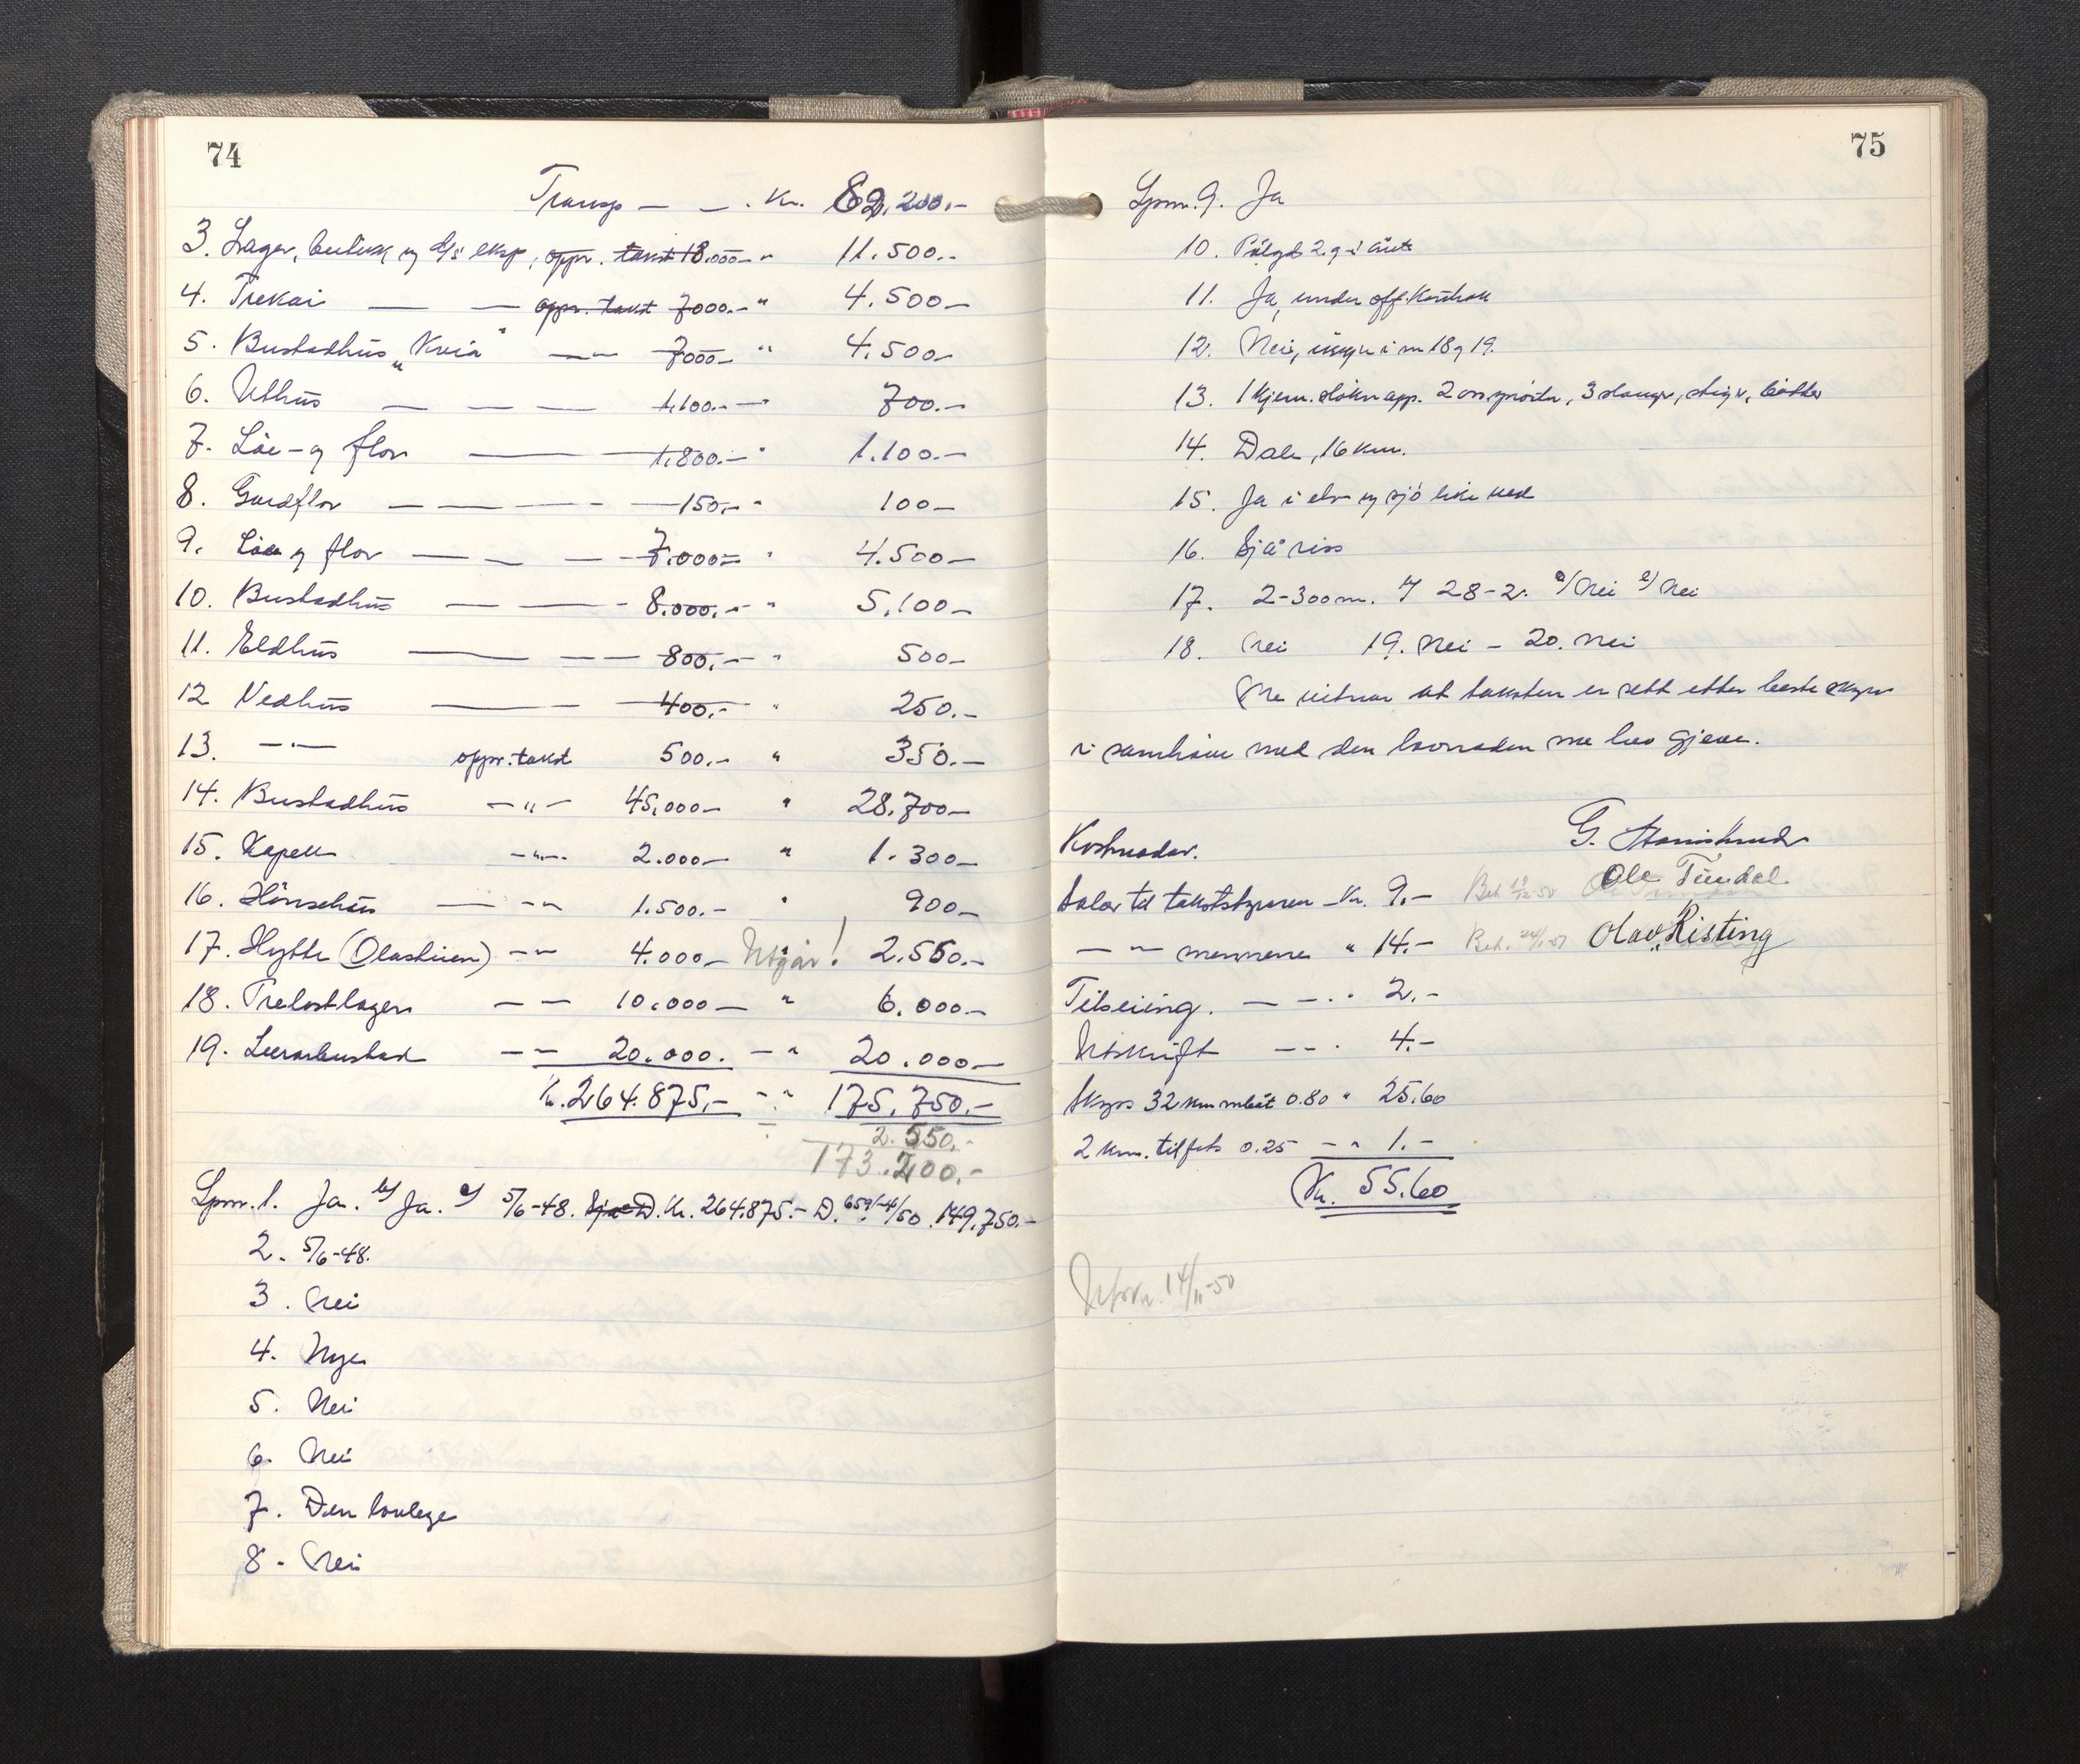 74
Transp — — . Kr. 82.200.-
3. Lager, butikk og d/s eksp, oppr. takst 18.000.- " 11.500.-
4. Trekai — — oppr. takst 7000.- " 4.500.-
5. Bustadhus "Kvia" —"— 7000.- " 4.500.-
6. Uthus — — — 1.100.- " 700.-
7. Löe- og flor — — 1.800.- " 1.100.-
8. Gardflor — — — 150.- " 100.-
9. Löe og flor — — — 7.000.- " 4.500.-
10. Bustadhus — — - 8.000.- " 5.100.-
11. Eldhus — — — 800.- " 500.-
12 Vedhus — — 400.- " 250.-
13. —"— oppr. takst 500.- " 350.-
14. Bustadhus —"— 45.000.- " 28.700.-
15. Kapell —"— 2.000.- " 1.300.-
16. Hönsehus — —"— 1.500.- " 900.-
17. Hytte (Olastuen) —"— 4.000.- Utgår! 2.550.-
18. Trelastlager —"— 10.000.- " 6.000.-
19. Lærarbustad —"— 20.000.- " 20.000.-
Kr. 264.875.- " 175.750.-
2.550.-
173.200.-
Spm. 1. Ja. b/ Ja. c/ 5/6-48. D. Kr. 264.875.- D. 149.750.-
2. 5/6-48.
3. Nei
4. Nye
5. Nei
6. Nei
7. Den lovlege
8. Nei
75
Spm. 9. Ja
10. 2 g. i året
11. Ja, under off. kontroll
12. Nei, ingen i nr 18 og 19.
13. 1 kjem. slökn.app. 2 , 3 slanger, stiger, bötter
14. Dale, 16 km.
15. Ja i elv og sjö like ved
16. Sjå riss
17. 2-300 m. 28-2. Nei Nei
18. Nei 19. Nei - 20. Nei
Me vitnar at taksten er sett etter beste skyn
i samhöve med den lovnaden me hev gjeve.
Kostnader.
G.
Salær til takststyraren - Kr. 9.- Bet. Ole Tundal
— " — mennene " 14.- Bet. Olav Risting
Tilseiing. — — . " 2.-
Utskrift — — . 4.-
Skyss 32 km m båt 0.80 " 25.60
2 km. til fots 0.25 — " 1.-
Kr. 55.60
Utskr. 14/11-50